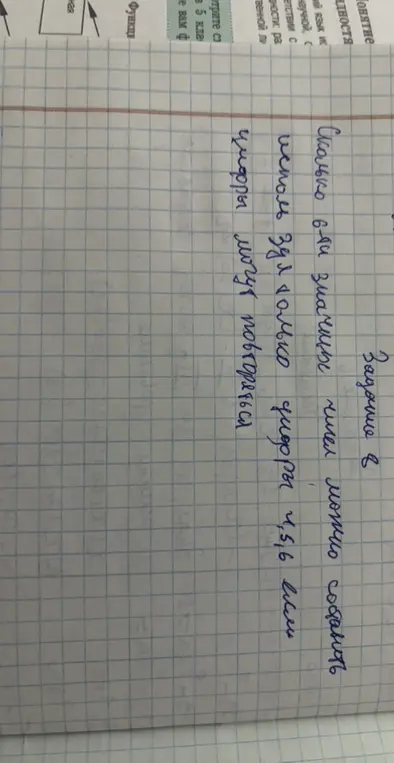 Понятие
Функци
Задание 8
Сколько 6-ти значных чисел можно составить
использ зуя только цифры 4,5,6 если
цифры могут повторяться